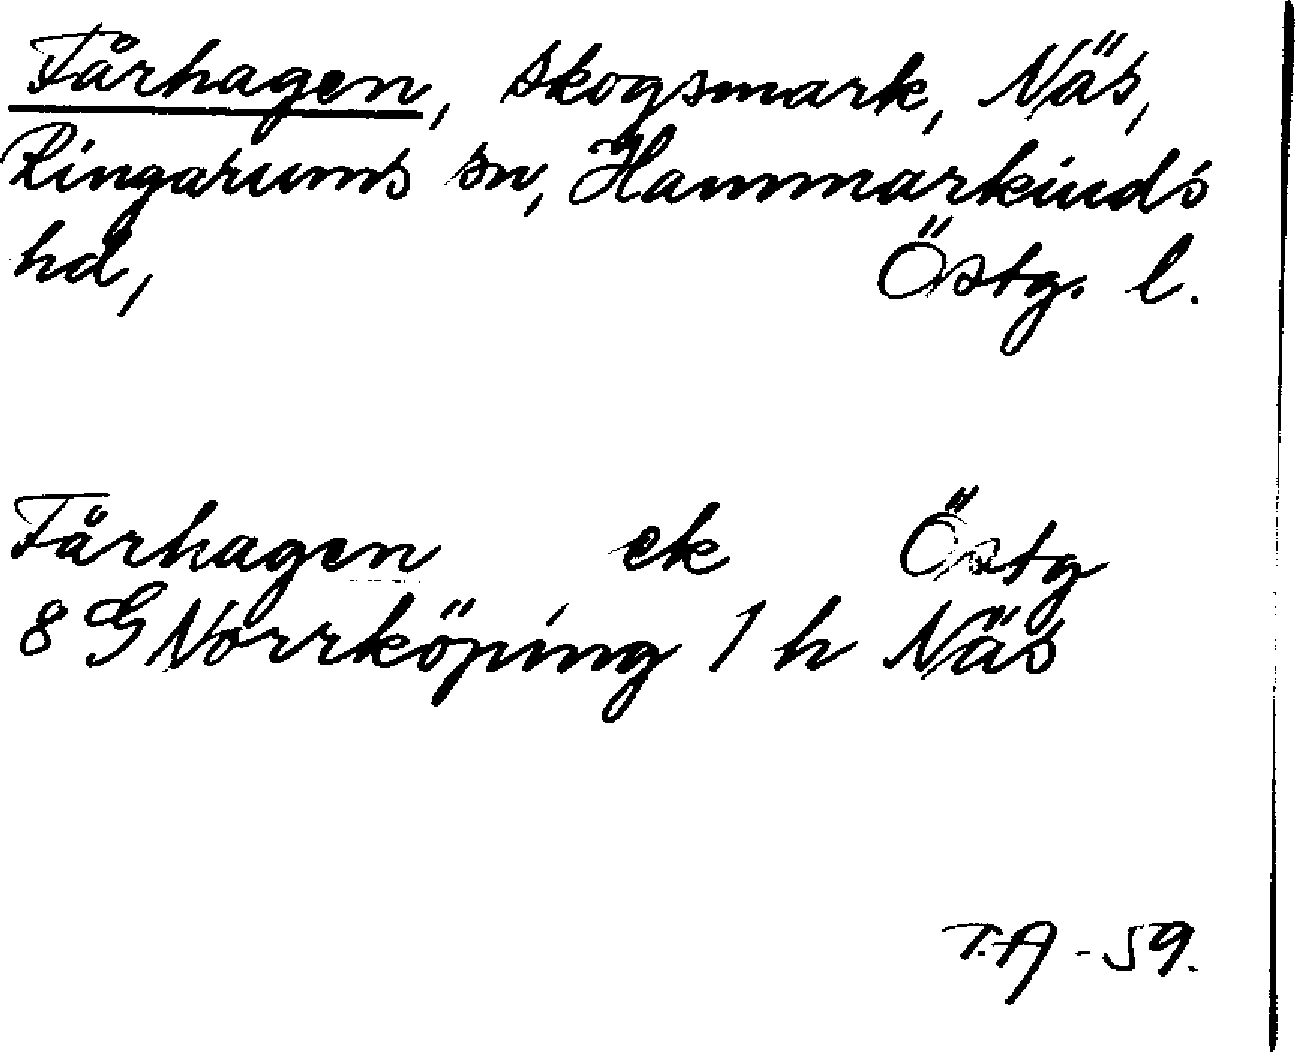 Fårhagen, skogsmark, Näs,
Ringarums sn, Hammarkinds
hd, Östg. l.
Fårhagen ek Östg
8 G Norrköping 1 h Näs
T.A - 59.